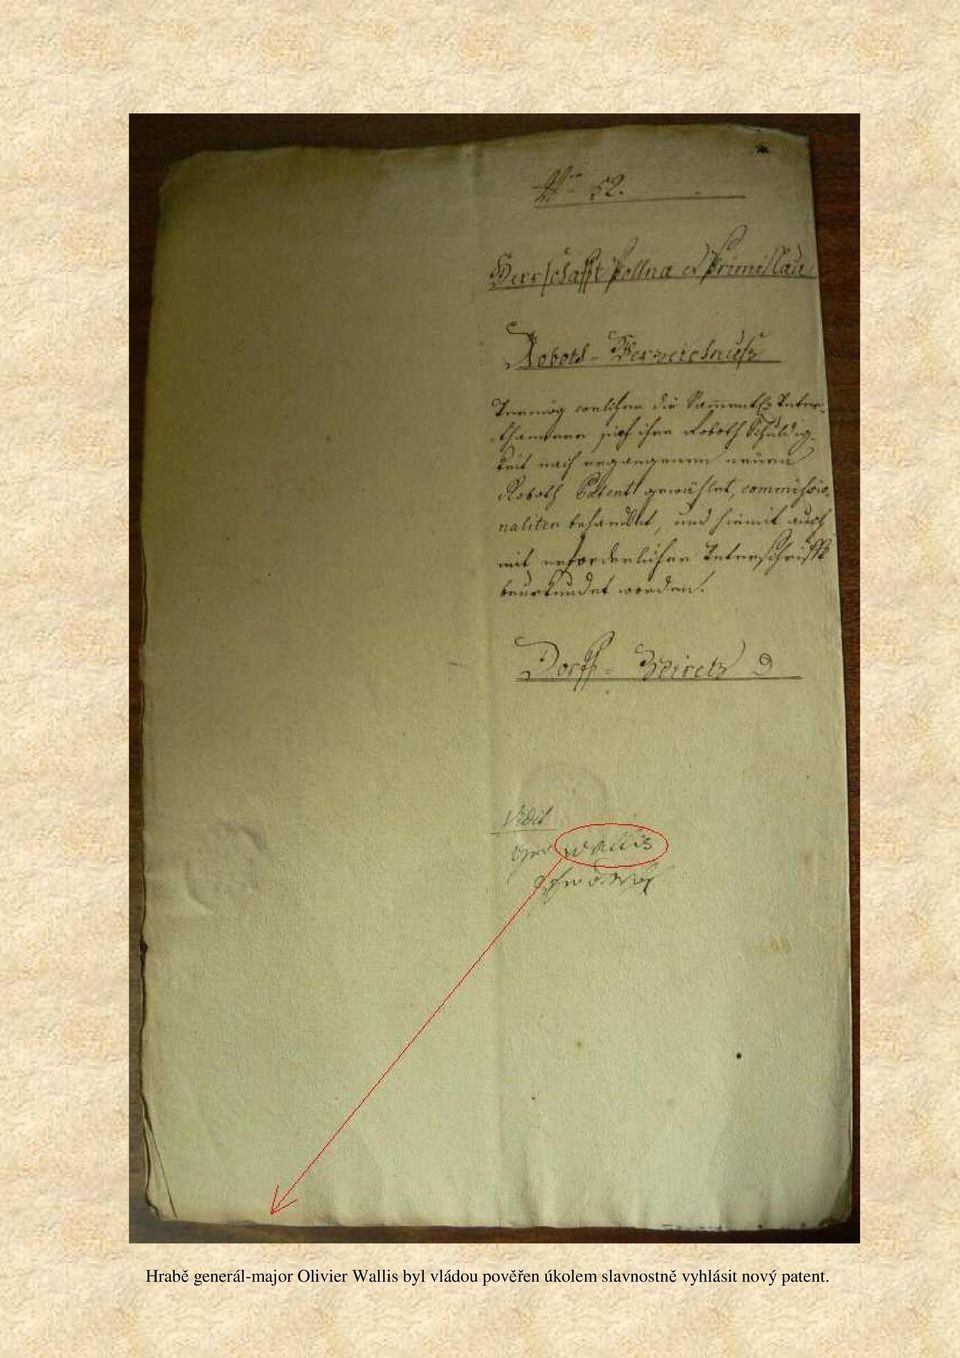 Nro 52.
Herrschafft Pollna et Primislau
Robots-Verzeichnuß
Vermög welcher die Sammentl. Unter-
thannen sich ihre Roboth Schuldig-
keit nach ergangenem neuen
Roboth Patent gewählet, commissio-
naliter behandlet, und hiemit auch
mit erforderlicher Unterschrifft
beurkundet worden.
Dorff =
Vidit
Wallis
Hrabě generál-major Olivier Wallis byl vládou pověřen úkolem slavnostně vyhlásit nový patent.